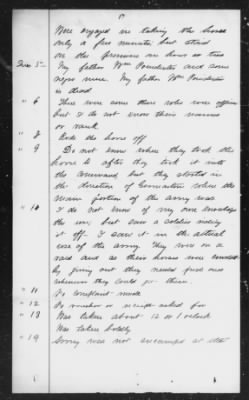 Were engaged in taking the horse
only a few minutes but stayed
on the premises an hour or two
Ques 5 My father Wm Poindexter and some
negro men. My father Wm Poindexter
is dead
" 6 There were some there who were officers
but I do not know their names
or rank
" 8 Rode the horse off
" 9 Do not know where they took this
horse to after they took it into
the command, but they started in
the direction of where the
main portion of the army was
" 10 I do not know of my own knowledge
the use, but saw a soldier riding
it off. I saw it in the actual
use of the army. They were on a
raid and as their horses were
by giving out they needed fresh ones
wherever they could get them.
" 11 No complaint made
" 12 No voucher or receipt asked for
" 13 Was taken about 12 or 1 o'clock
Was taken boldly
" 19 Army was not encamped at the